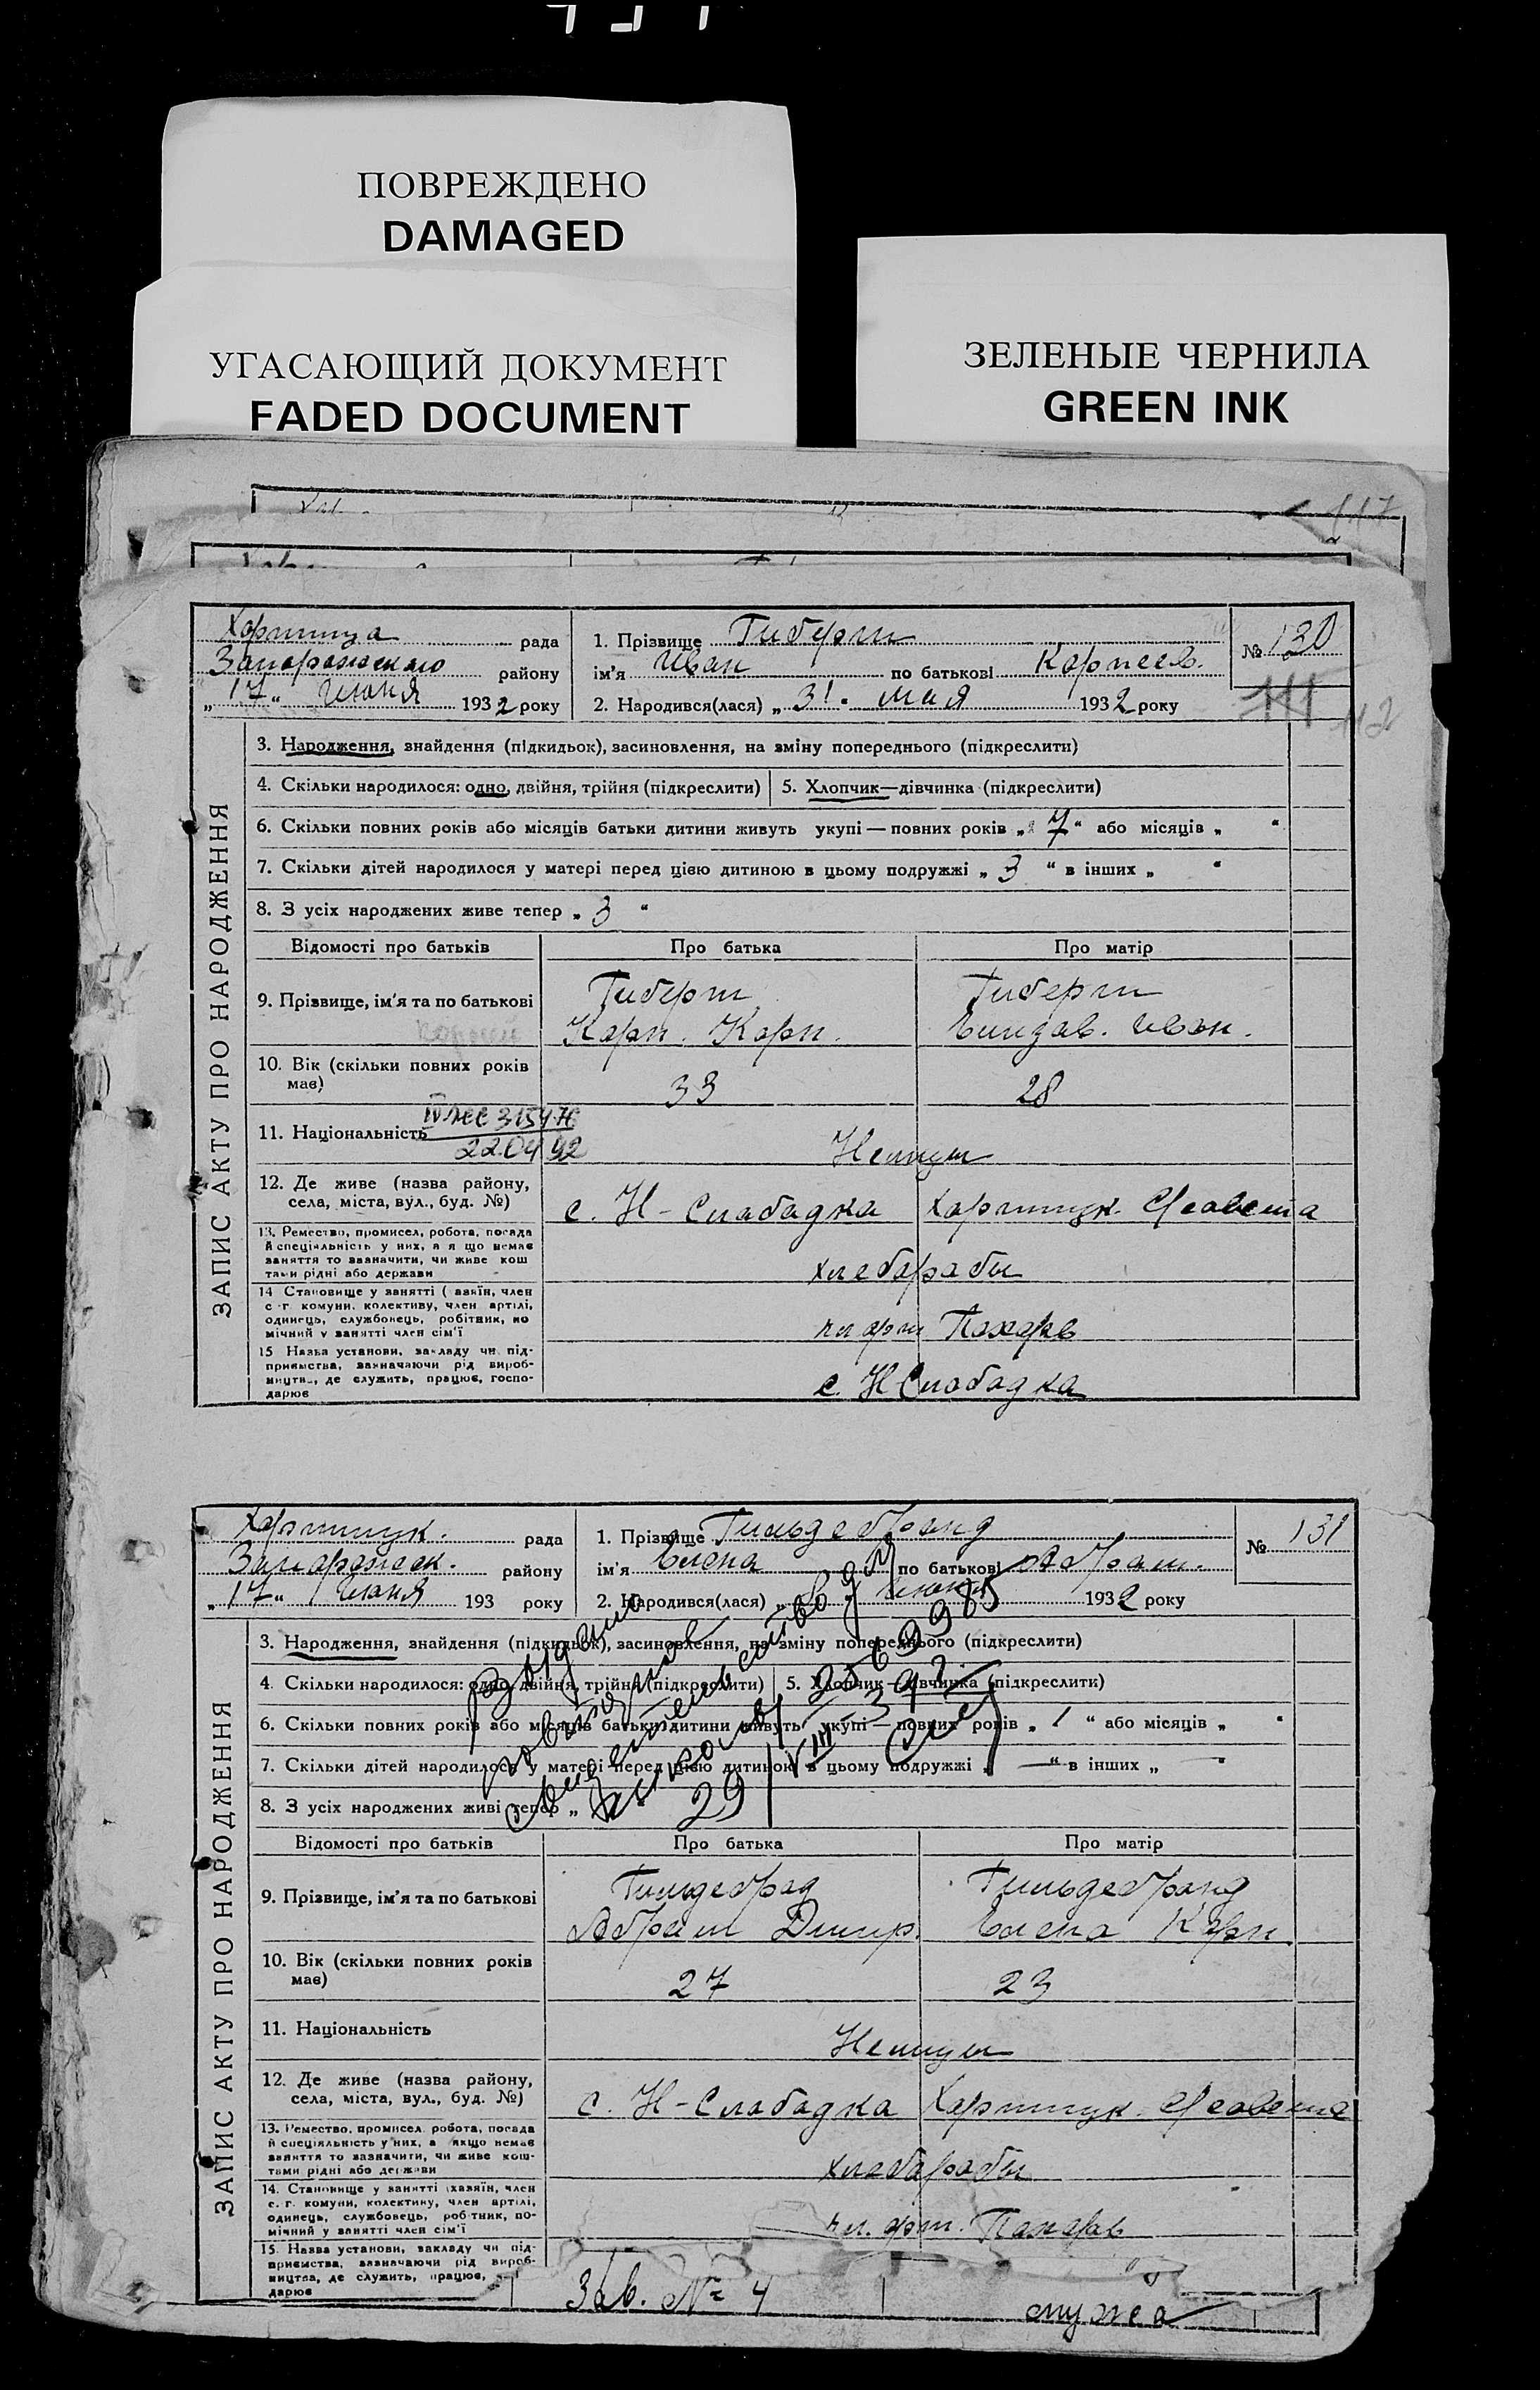 ПОВРЕЖДЕНО
DAMAGED
УГАСАЮЩИЙ ДОКУМЕНТ
FADED DOCUMENT
ЗЕЛЕНЫЕ ЧЕРНИЛА
GREEN INK
117
ЗАПИС АКТУ ПРО НАРОДЖЕННЯ
Хортица рада
Запорожского району
„17“ Июня 1932 року
1. Прізвище Гиберт
ім'я Иван по батькові Корнеев.
2. Народився(лася) „31“ мая 1932 року
№ 130
111 112
3. Народження, знайдення (підкидьок), засиновлення, на зміну попереднього (підкреслити)
4. Скільки народилося: одно, двійня, трійня (підкреслити) 5. Хлопчик—дівчинка (підкреслити)
6. Скільки повних років або місяців батьки дитини живуть укупі — повних років „7“ або місяців „ “
7. Скільки дітей народилося у матері перед цією дитиною в цьому подружжі „3“ в інших „ “
8. З усіх народжених живе тепер „3“
Відомості про батьків Про батька Про матір
9. Прізвище, ім'я та по батькові
Гиберт Гиберт
Корн. Корн. Елизав. Иван.
10. Вік (скільки повних років має) 33 28
11. Національність Немцы
22.04 92
12. Де живе (назва району, села, міста, вул., буд. №)
с. Н-Слабадка Хортицк. С/совета
13. Ремество, промисел, робота, посада й спеціяльність у них, а я що немає заняття то зазначити, чи живе кош тами рідні або держави
хлебаробы
14 Становище у занятті (хазяїн, член с.-г. комуни, колективу, член артілі, одинець, службовець, робітник, по мічний у занятті член сім'ї
чл арт Пахарь
15 Назва установи, закладу чи підприємства, зазначаючи рід виробництва, де служить, працює, господарює
с. Н Слабадка
ЗАПИС АКТУ ПРО НАРОДЖЕННЯ
Хортицк. рада
Запорожск. району
„17“ Июня 193 року
1. Прізвище Гильдебранд
ім'я Елена по батькові Абрам.
2. Народився(лася) „ Июня 1932 року
№ 131
3. Народження, знайдення (підкидьок), засиновлення, на зміну попереднього (підкреслити)
4. Скільки народилося: одно, двійня, трійня (підкреслити) 5. Хлопчик—дівчинка (підкреслити)
6. Скільки повних років або місяців батьки дитини живуть укупі — повних років „1“ або місяців „ “
7. Скільки дітей народилося у матері перед цією дитиною в цьому подружжі „—“ в інших „ “
8. З усіх народжених живі тепер „
Выдано
повторное
свидетельство
29/VIII
Відомості про батьків Про батька Про матір
9. Прізвище, ім'я та по батькові
Гильдебрад Гильдебранд
Абрам Дмитр. Елена Корн.
10. Вік (скільки повних років має) 27 23
11. Національність Немцы
12. Де живе (назва району, села, міста, вул., буд. №)
с. Н-Слабадка Хортицк. С/совета
13. Ремество, промисел, робота, посада й спеціяльність у них, а якщо немає заняття то зазначити, чи живе коштами рідні або держави
хлебаробы
14. Становище у занятті (хазяїн, член с.-г. комуни, колективу, член артілі, одинець, службовець, робітник, помічний у занятті член сім'ї
чл. арт. Пахарь
15. Назва установи, закладу чи підприємства, зазначаючи рід виробництва, де служить, працює,
дарює
Зав. № 4 мужа